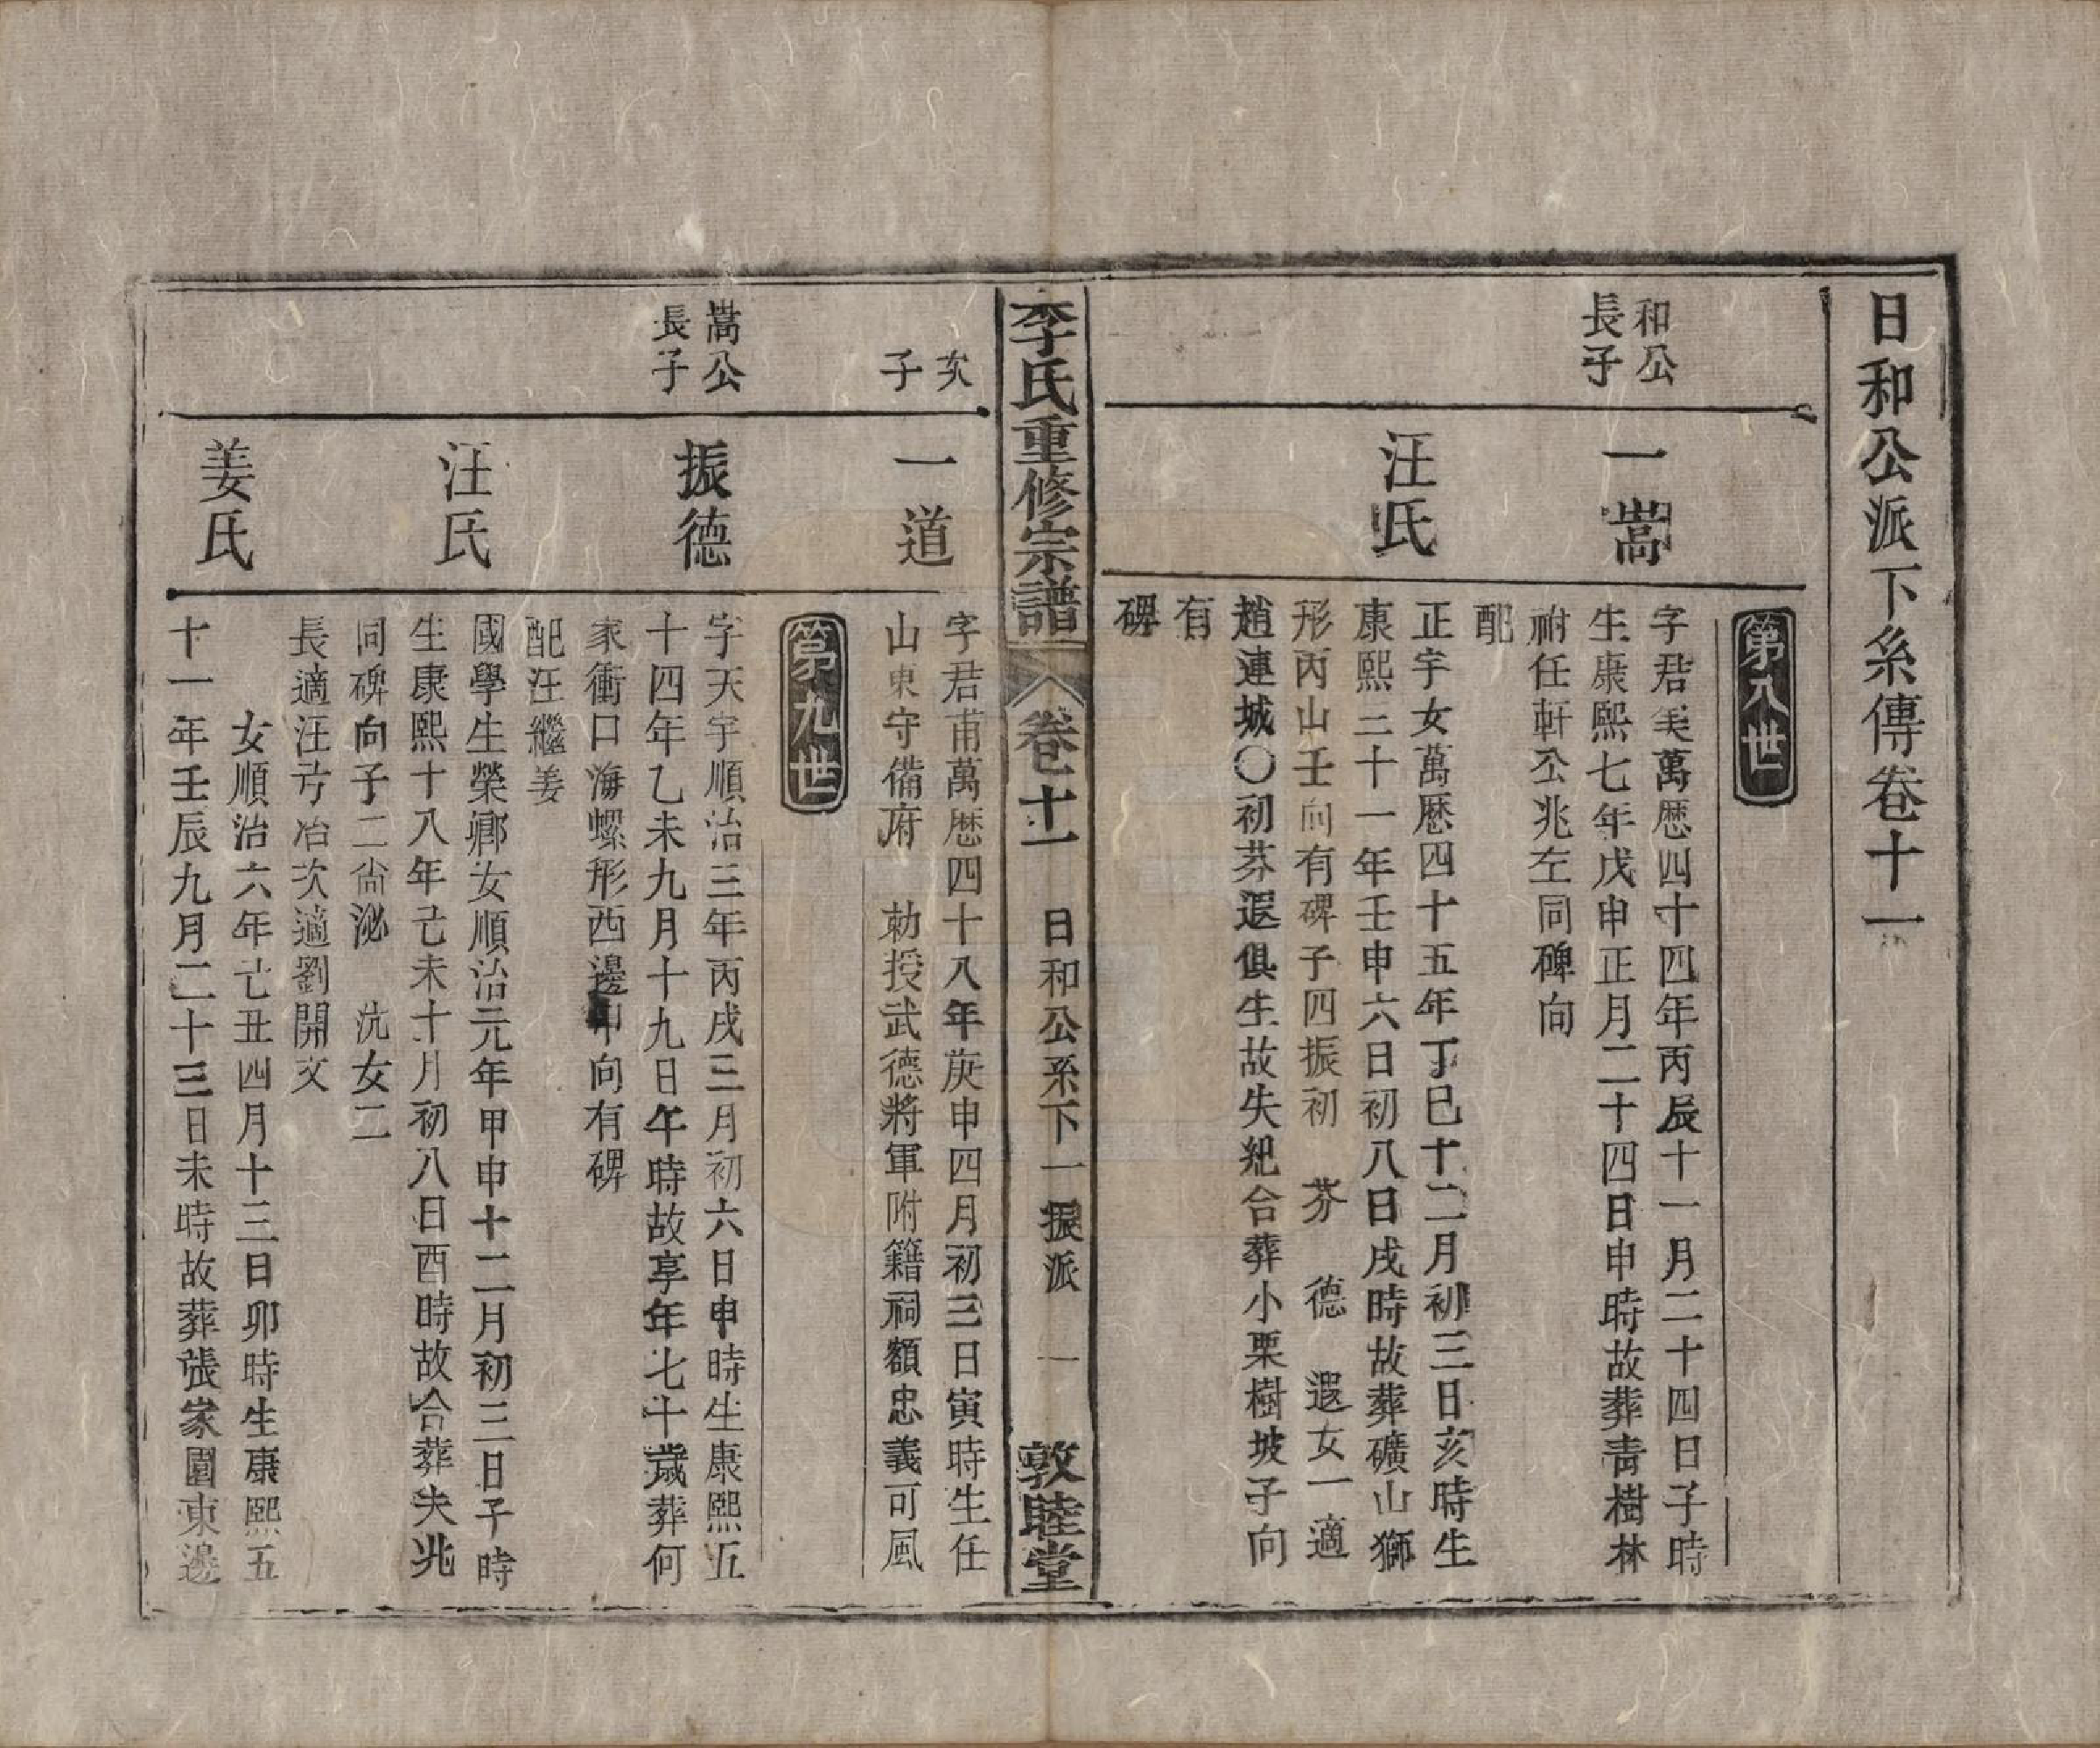 日和公派下系傳卷十一
第八世
和公
長子
一嵩
字君美萬歷四十四年丙辰十一月二十四日子時
生康熙七年戊申正月二十四日申時故葬青樹林
祔任軒公兆左同碑向
配
汪氏
正宇女萬歷四十五年丁巳十二月初三日亥時生
康熙三十一年壬申六日初八日戌時故葬礦山獅
形丙山壬向有碑子四振初 芬 德 遐女一適
趙連城〇初芬遐俱生故失紀合葬小栗樹坡子向
有
碑
李氏重修宗譜 卷十一 日和公系下一振派 一 敦睦堂
次
子
一道
字君甫萬歷四十八年庚申四月初三日寅時生任
山東守備府 勅授武德將軍附籍祠額忠義可風
第九世
嵩公
長子
振德
字天宇順治三年丙戌三月初六日申時生康熙五
十四年乙未九月十九日午時故享年七十歲葬何
家衝口海螺形西邊 向有碑
配汪繼姜
汪氏
國學生榮鄉女順治元年甲申十二月初三日子時
生康熙十八年己未十月初八日酉時故合葬夫兆
同碑向子二尙泌 沆女二
長適汪方冶次適劉開文
姜氏
女順治六年己丑四月十三日卯時生康熙五
十一年壬辰九月二十三日未時故葬張家園東邊